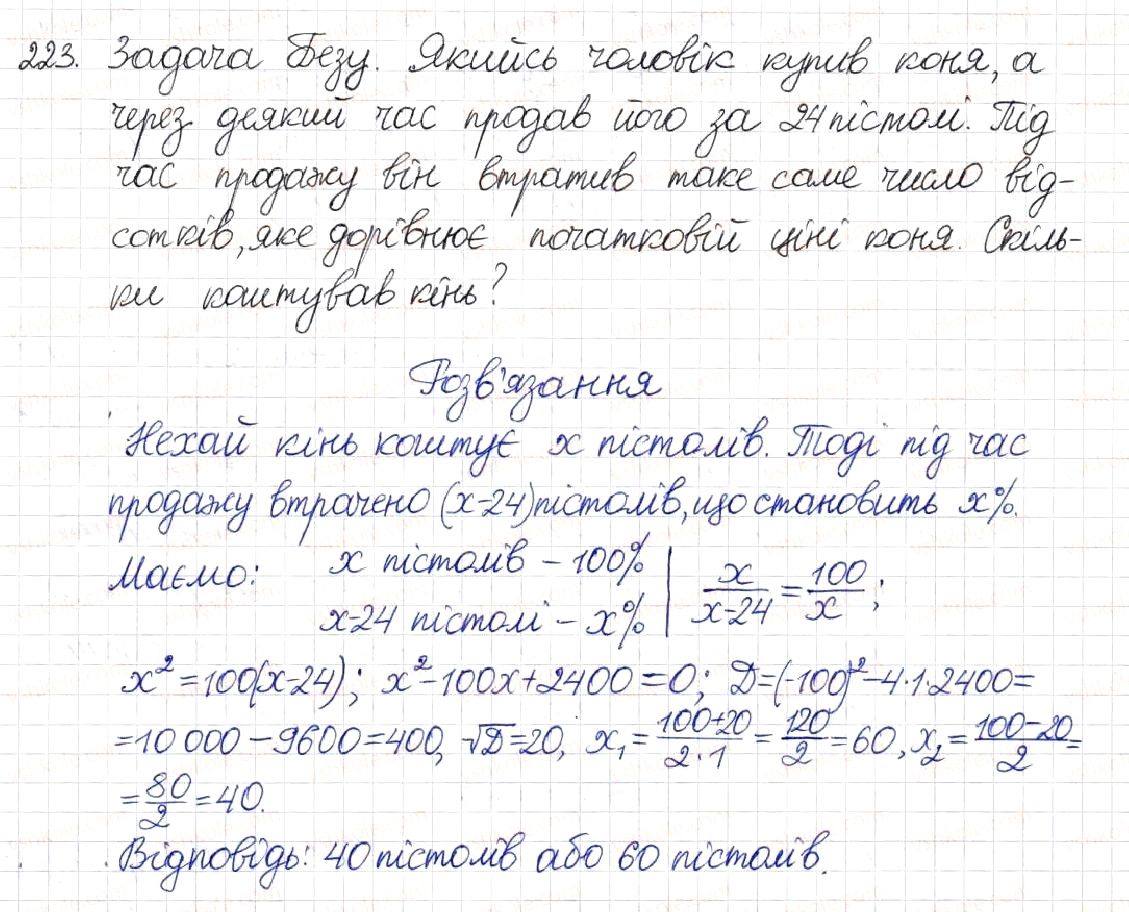 223. Задача Безу. Якийсь чоловік купив коня, а
через деякий час продав його за 24 пістолі. Під
час продажу він втратив таке саме число від-
сотків, яке дорівнює початковій ціні коня. Скіль-
ки коштував кінь?
Розв'язання
Нехай кінь коштує x пістолів. Тоді під час
продажу втрачено (x-24) пістолів, що становить x%.
Маємо: x пістолів – 100% | x/(x-24) = 100/x;
x-24 пістолі – x% |
x² = 100(x-24); x² - 100x + 2400 = 0; D = (-100)² - 4·1·2400 =
= 10 000 - 9600 = 400, √D = 20, x₁ = (100+20)/(2·1) = 120/2 = 60, x₂ = (100-20)/2 =
= 80/2 = 40.
Відповідь: 40 пістолів або 60 пістолів.